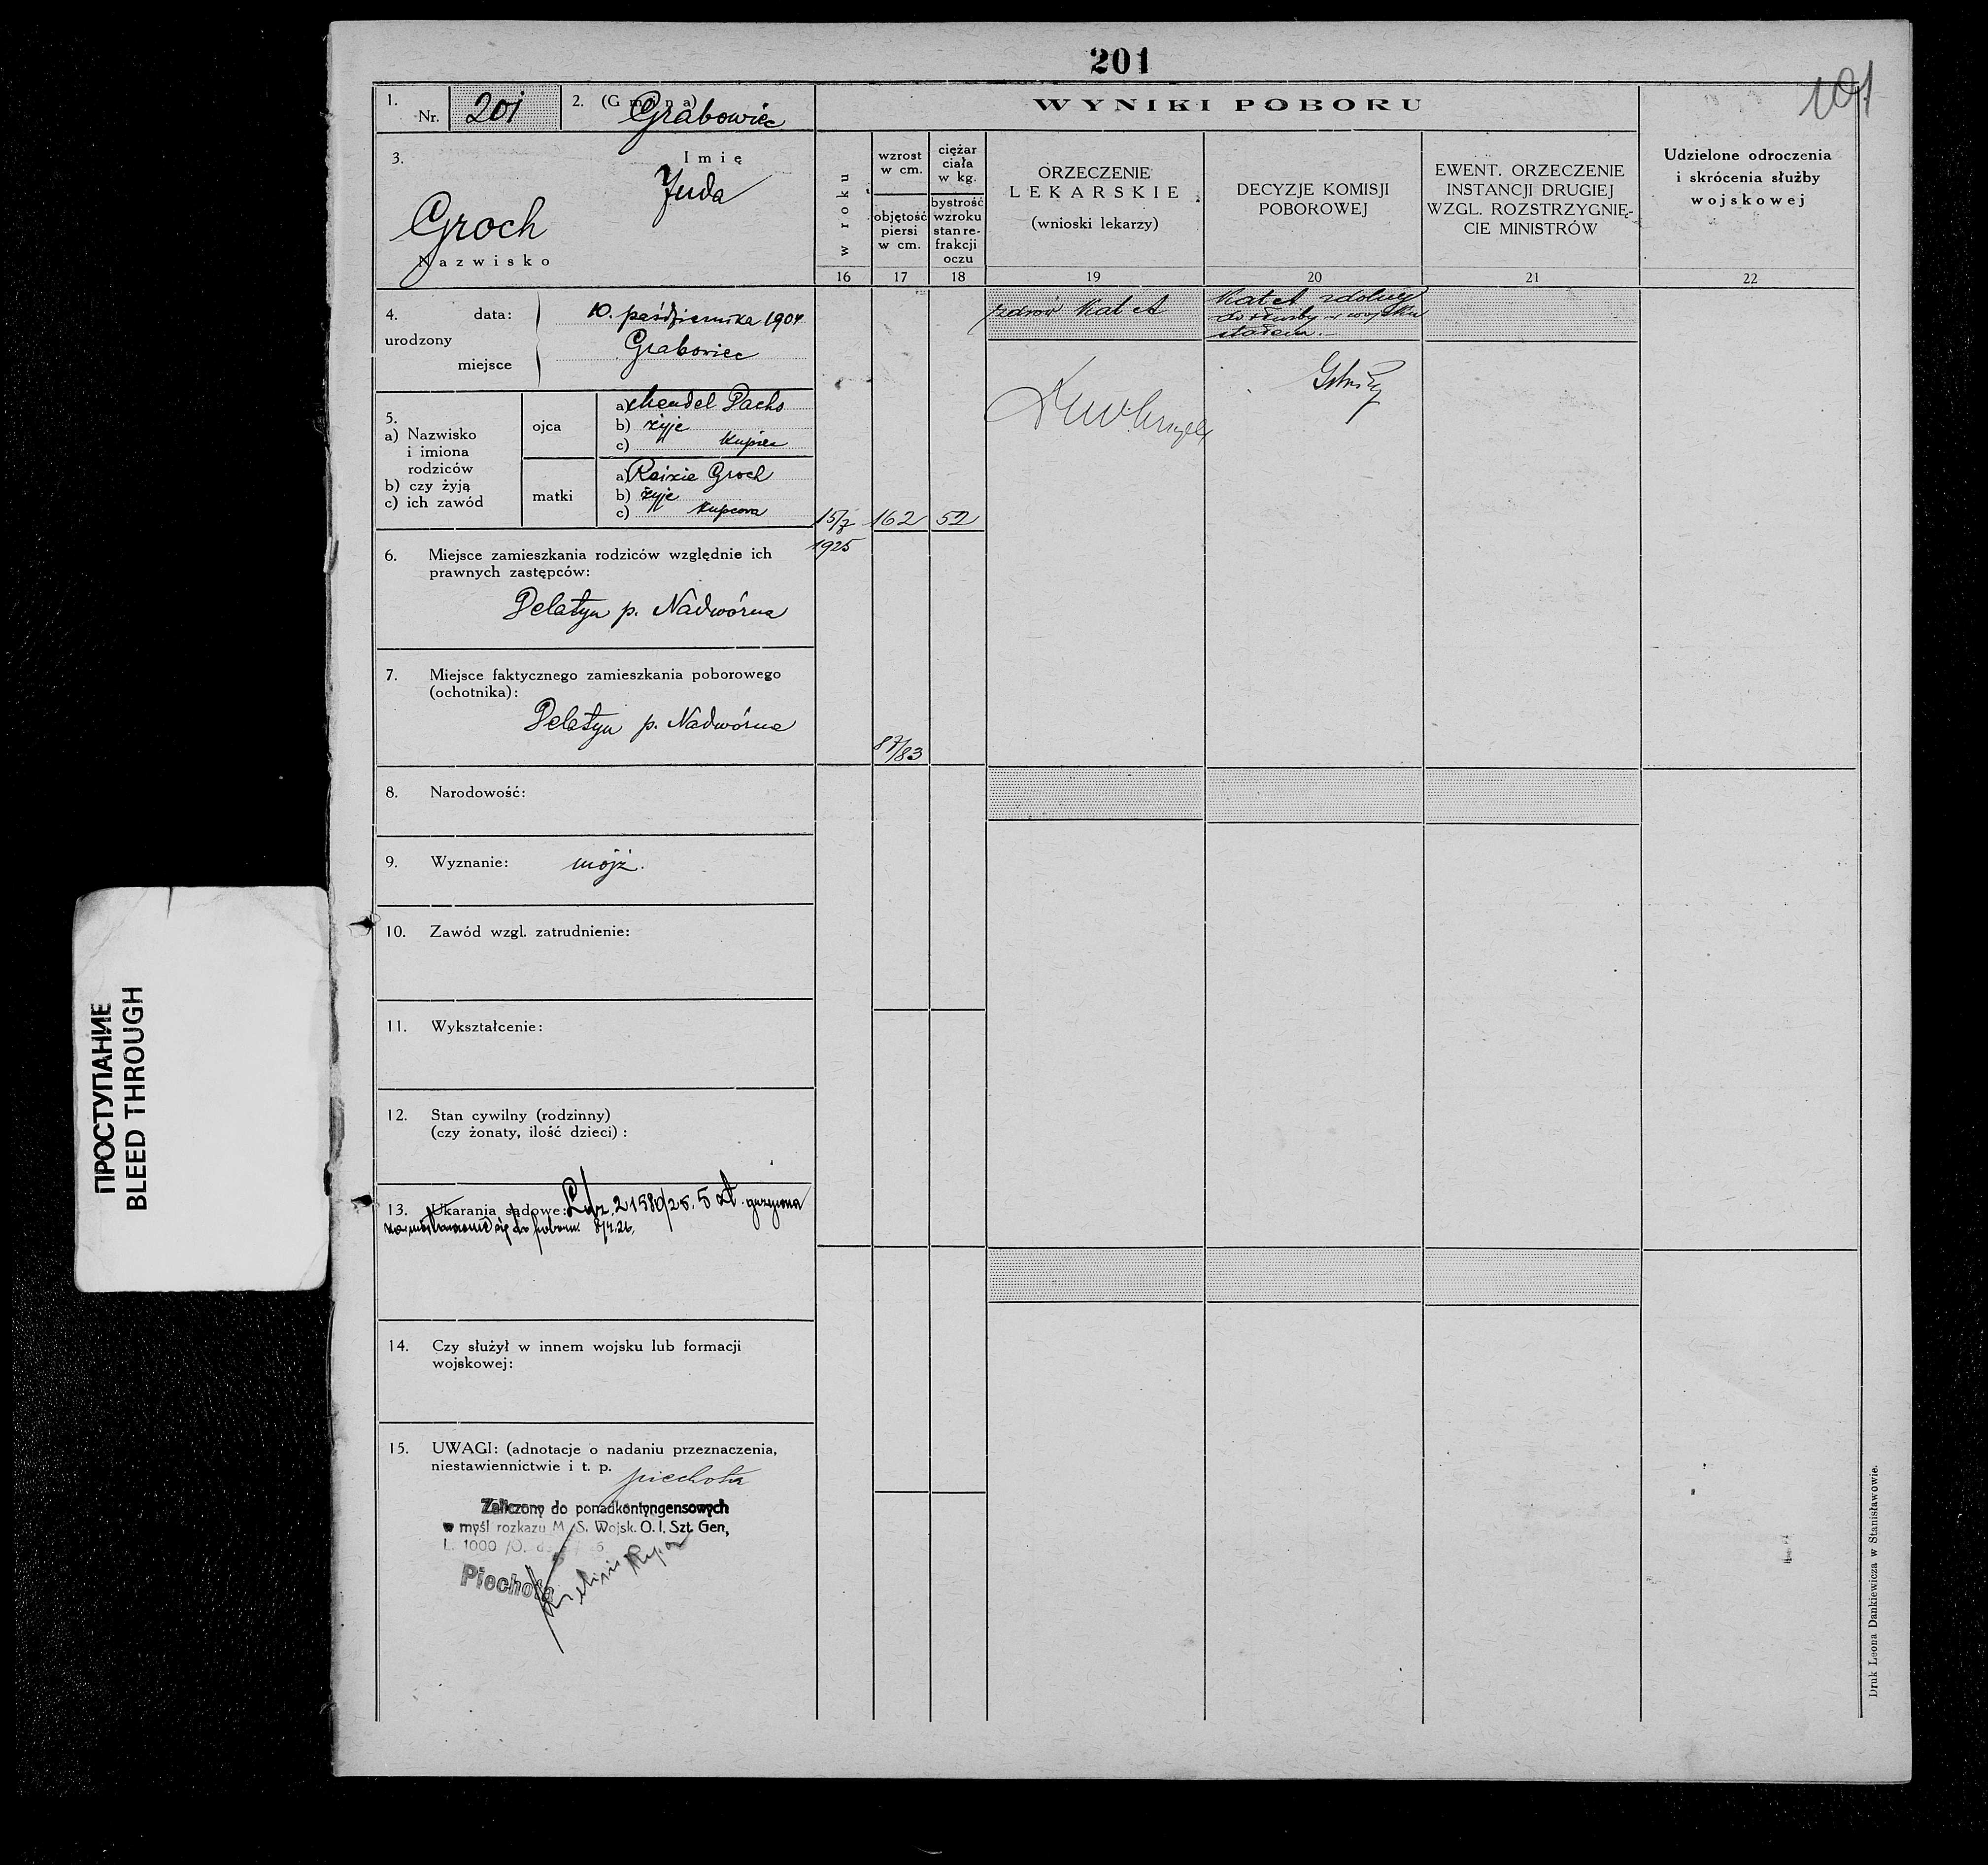 201
101
1. Nr. 201
2. (Gmina) Grabowiec
WYNIKI POBORU
3. Imię
Juda
Groch
Nazwisko
w roku
wzrost w cm.
objętość piersi w cm.
ciężar ciała w kg.
bystrość wzroku stan re-frakcji oczu
ORZECZENIE
LEKARSKIE
(wnioski lekarzy)
DECYZJE KOMISJI
POBOROWEJ
EWENT. ORZECZENIE
INSTANCJI DRUGIEJ
WZGL. ROZSTRZYGNIĘ-
CIE MINISTRÓW
Udzielone odroczenia
i skrócenia służby
wojskowej
16 17 18 19 20 21 22
4. data: 10. października 1904
urodzony
Grabowiec
miejsce
zdrów Kat A
Kat A zdolny
do służby w wojsku
stałem.
5.
a) Nazwisko
i imiona
rodziców
b) czy żyją
c) ich zawód
ojca
a) Mendel Pacho
b) żyje
c) kupiec
matki
a) Reizie Groch
b) żyje
c) kupcowa
15/7 162 52
1925
6. Miejsce zamieszkania rodziców względnie ich
prawnych zastępców:
Delatyn p. Nadwórna
7. Miejsce faktycznego zamieszkania poborowego
(ochotnika):
Delatyn p. Nadwórna
87/83
8. Narodowość:
9. Wyznanie: mojż.
10. Zawód wzgl. zatrudnienie:
11. Wykształcenie:
12. Stan cywilny (rodzinny)
(czy żonaty, ilość dzieci) :
13. Ukarania sądowe: L.dz. 21580/25. 5 zł. grzywna
się do poboru.
14. Czy służył w innem wojsku lub formacji
wojskowej:
15. UWAGI: (adnotacje o nadaniu przeznaczenia,
niestawiennictwie i t. p.
piechota
Zaliczony do ponadkontyngensowych
w myśl rozkazu M. S. Wojsk. O. I. Szt. Gen,
L. 1000 /O.
Piechota
Druk Leona Dankiewicza w Stanisławowie.
ПРОСТУПАНИЕ
BLEED THROUGH